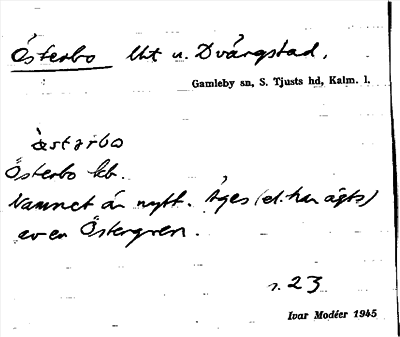 Österbo lht u. Dvärgstad,
Gamleby sn, S. Tjusts hd, Kalm. l.
östarbo
Österbo lht.
Namnet är nytt. Äges (el. har ägts)
av en Östergren.
s. 23
Ivar Modéer 1945